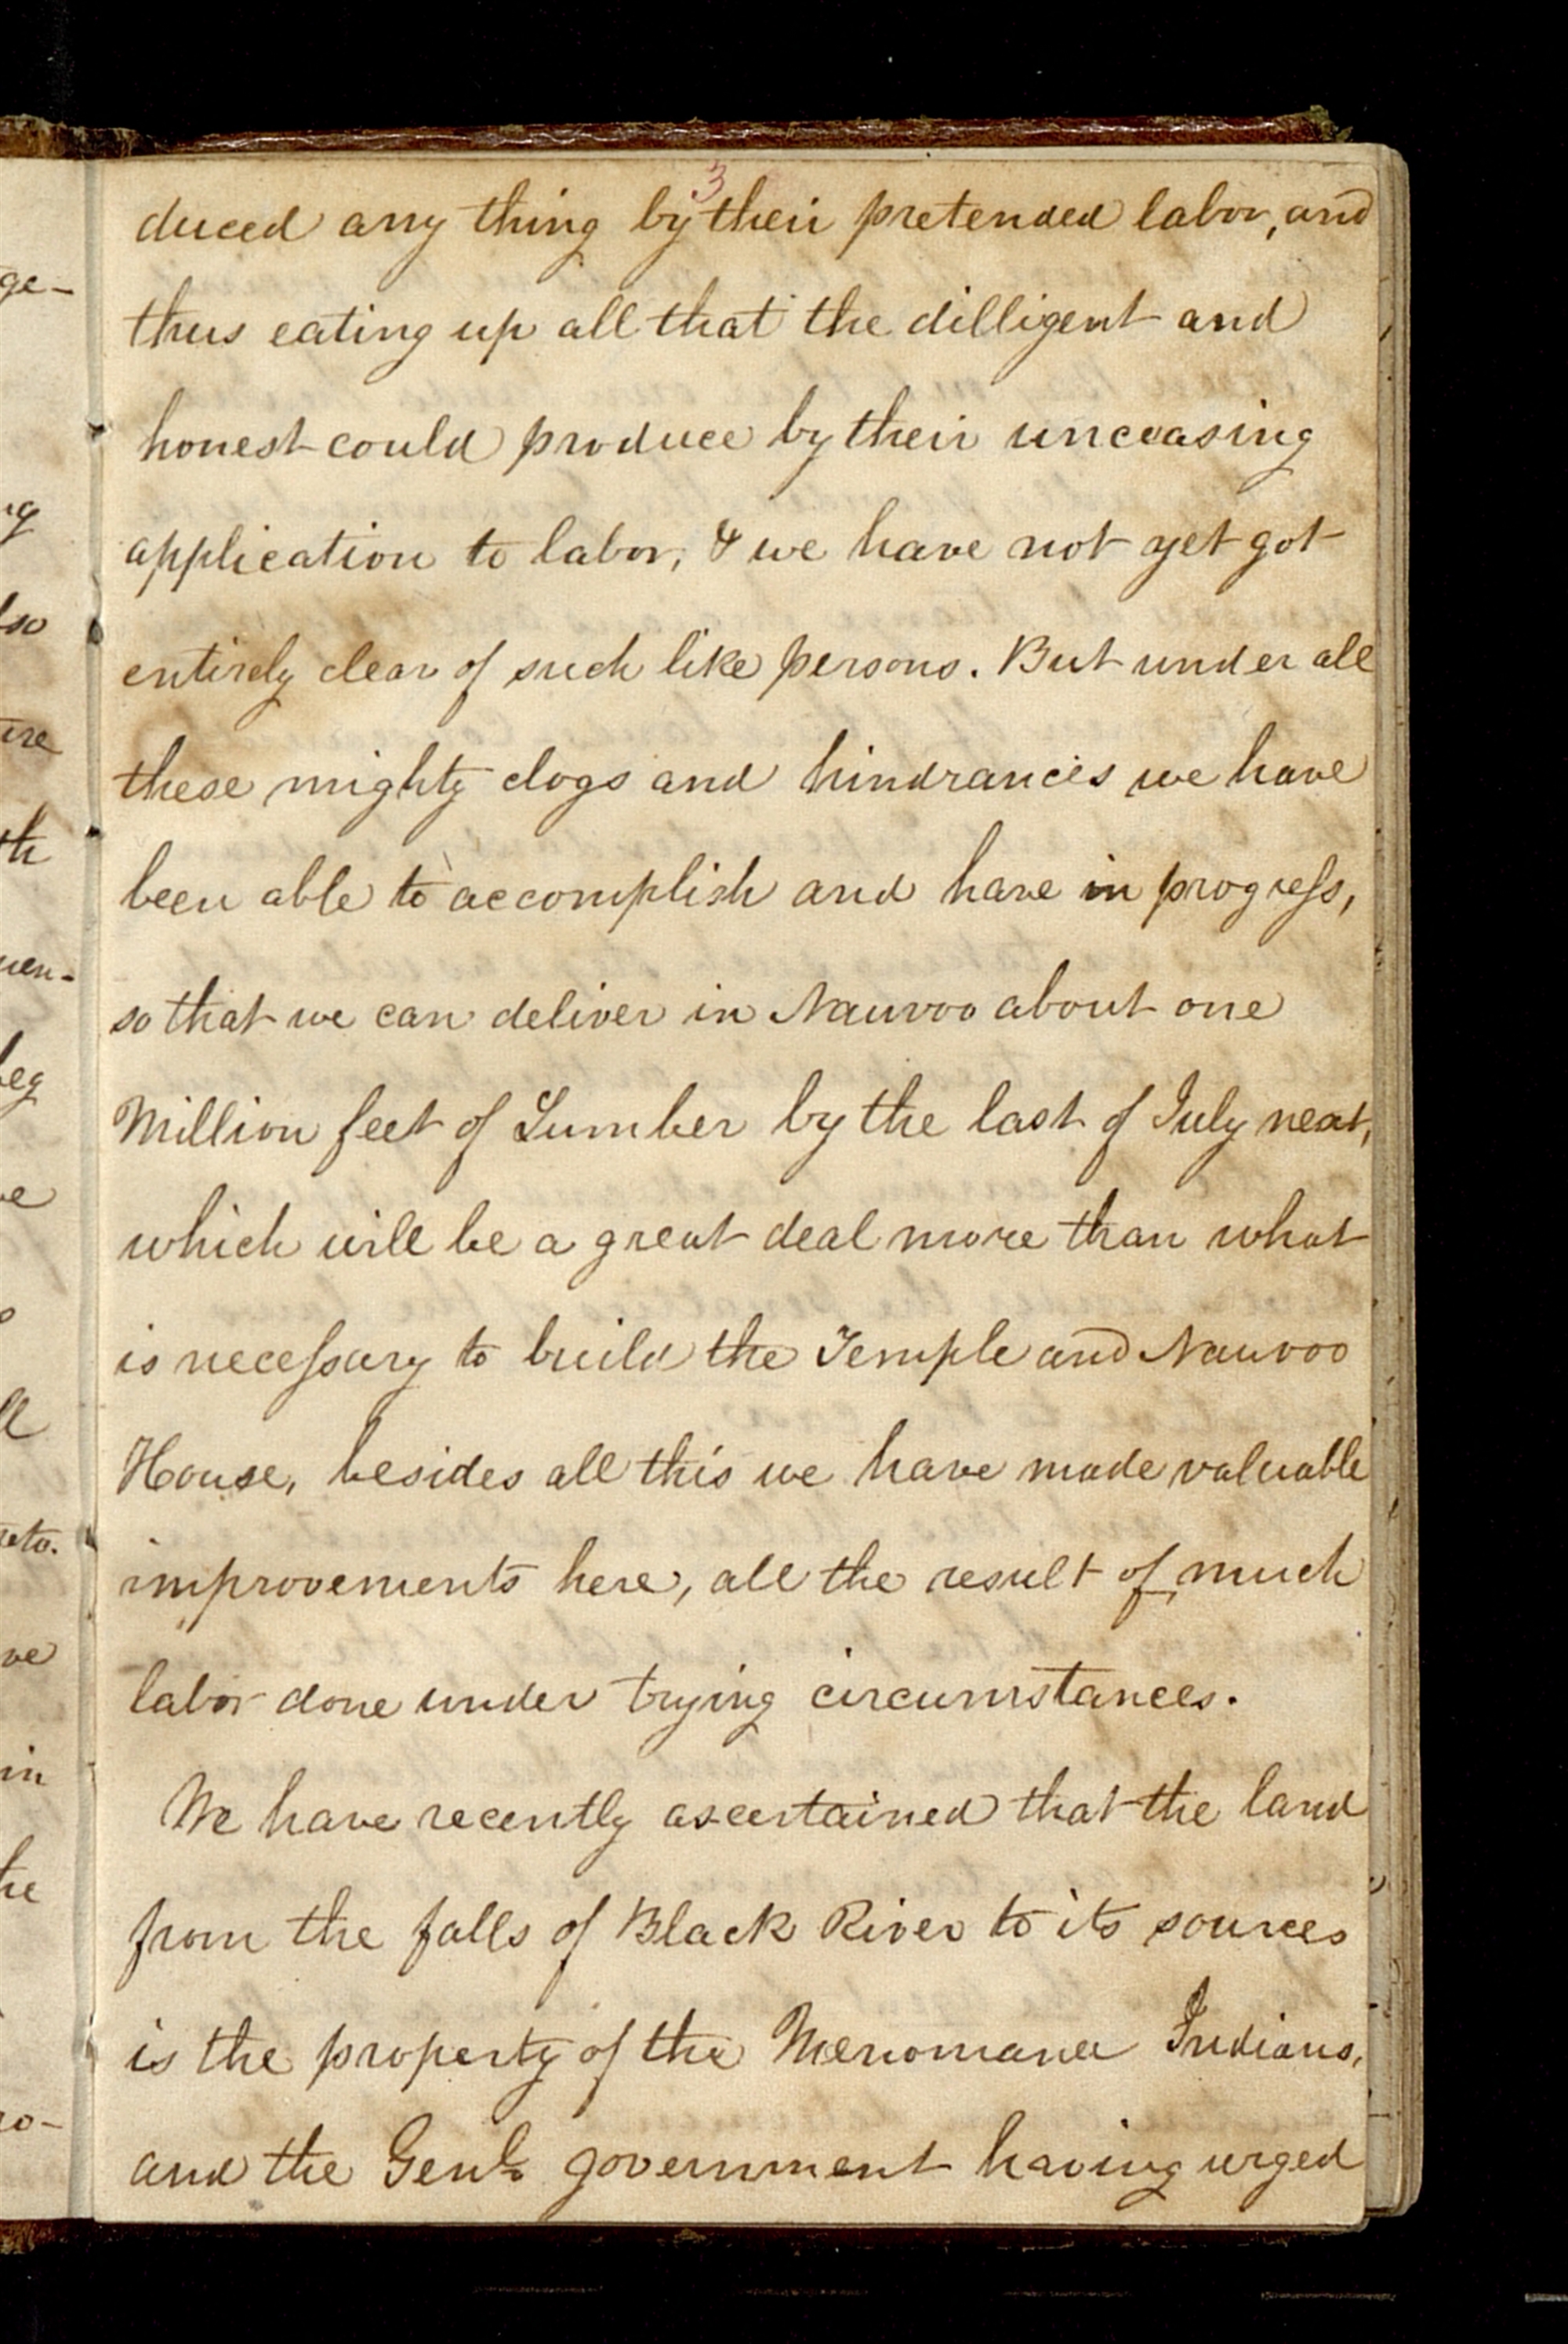 3
duced any thing by their pretended labor, and
thus eating up all that the dilligent and
honest could produce by their unceasing
application to labor, & we have not yet got
entirely clear of such like persons. But under all
these mighty clogs and hindrances we have
been able to accomplish and have in progress,
so that we can deliver in Nauvoo about one
Million feet of Lumber by the last of July next,
which will be a great deal more than what
is necessary to build the Temple and Nauvoo
House, besides all this we have made valuable
improvements here, all the result of much
labor done under trying circumstances.
We have recently ascertained that the land
from the falls of Black River to its sources
is the property of the Menomanee Indians,
and the Genl. government having urged